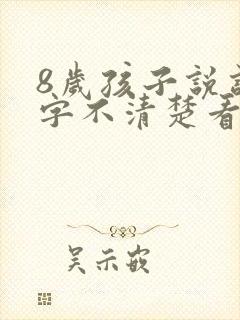 8歲孩子說
字不清楚看
吴示嵌